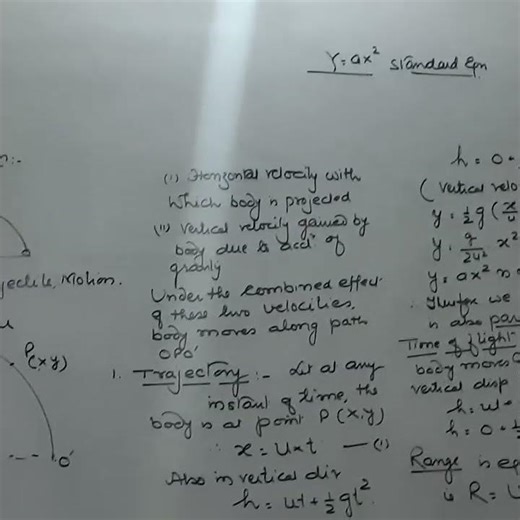 Y = ax² Standard Eqn
jectile Motion.
P(x y)
O'
(i) Horizontal velocity with
which body is projected
(ii) vertical velocity gained by
body due to accⁿ of
gravity
Under the combined effect
of these two velocities,
body moves along path
OPO'
1. Trajectory :- Let at any
instant of time, the
body is at point P(x,y)
∴ x = u×t — (i)
Also in vertical dir
h = ut + ½gt²
h = 0 +
(vertical velo
y = ½ g (x/u
y = g/2u² x²
y = ax²
we
is also par
Time of flight
body moves
vertical disp
h = ut
h = 0 + ½
Range is eq
is R = u